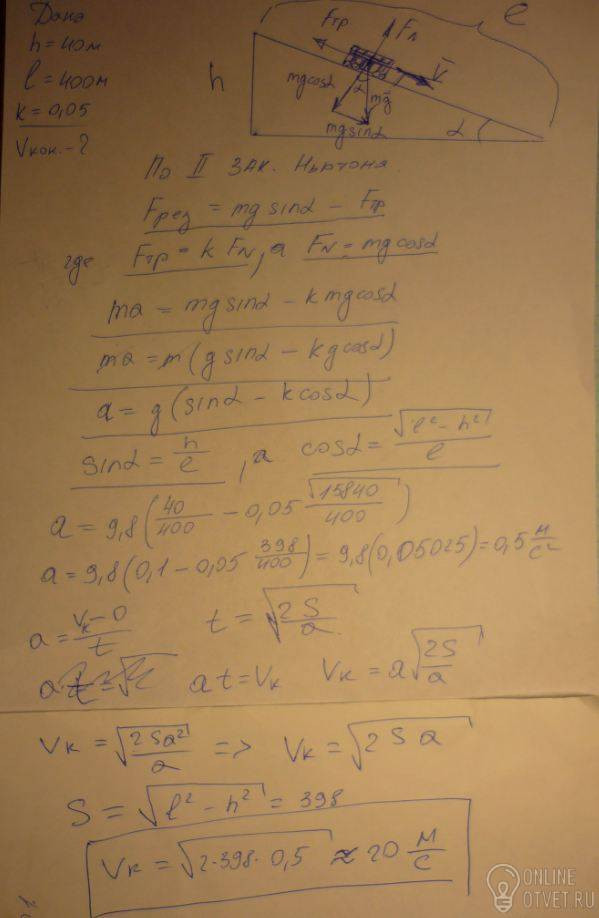 Дано
h = 40м
l = 400м
k = 0,05
Vкон. - ?
h
l
Fтр
FN
V
mgcosα
α
mg
mgsinα
α
По II зак. Ньютона
Fрез = mg sinα - Fтр
где Fтр = k FN, а FN = mg cosα
ma = mg sinα - k mg cosα
ma = m(g sinα - kg cosα)
a = g(sinα - k cosα)
sinα = h/l, а cosα = √(l² - h²)/l
a = 9,8(40/400 - 0,05 √15840/400)
a = 9,8(0,1 - 0,05 398/400) = 9,8(0,05025) = 0,5 м/с²
a = (Vк - 0)/t t = √(2S/a)
at = Vк Vк = a√(2S/a)
Vк = √(2Sa²/a) => Vк = √(2 S a)
S = √(l² - h²) = 398
Vк = √(2·398·0,5) ≈ 20 м/с
ONLINE
OTVET.RU